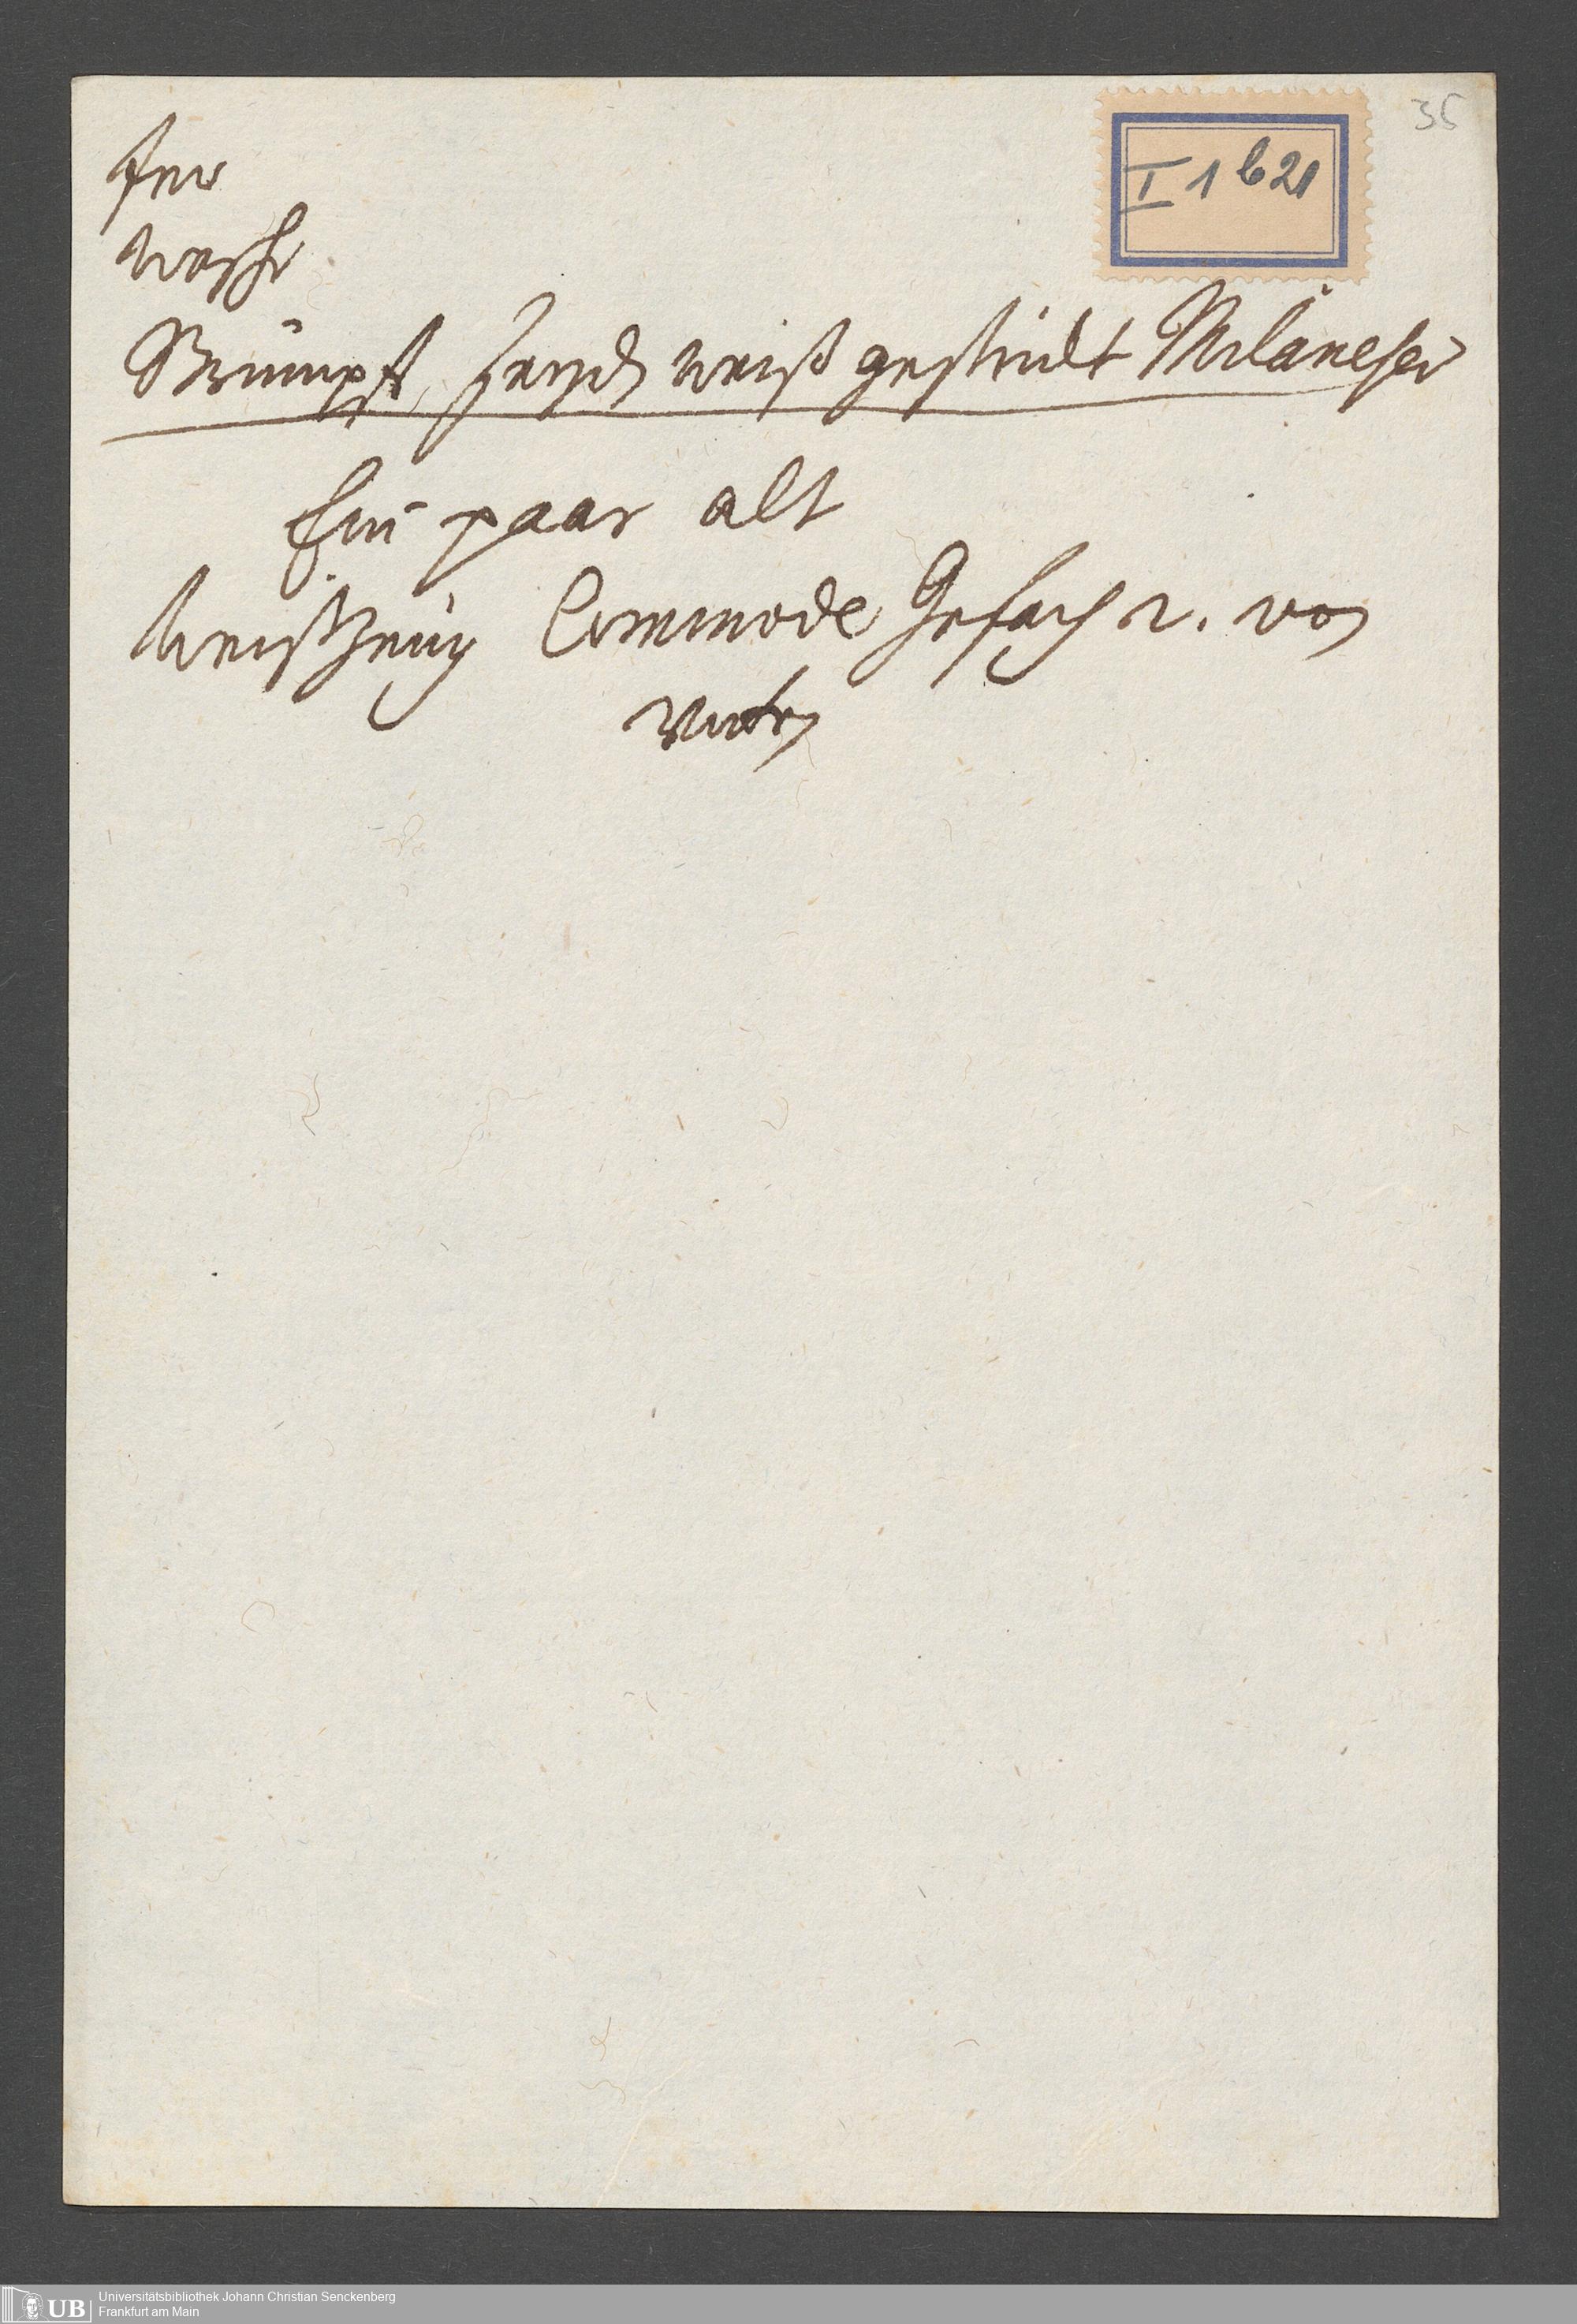 35
I 1 b 21
wasche
Strümpff, seyden weiß gestrickt Milaneser
Ein paar alt
Weißzeug Commode Gefach 2. von
unten
UB Universitätsbibliothek Johann Christian Senckenberg
Frankfurt am Main